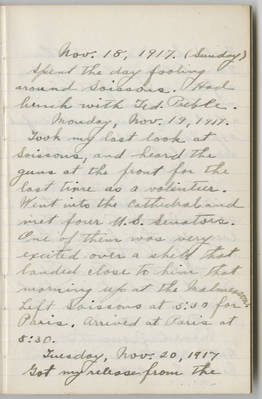 Nov. 18, 1917. (Sunday)
Spent the day fooling
around Soissons. Had
lunch with Ted. Pebble.
Monday, Nov. 19, 1917.
Took my last look at
Soissons, and heard the
guns at the front for the
last time as a volunteer.
Went into the Cathedral and
met four U.S. Senators.
One of them was very
excited over a shell that
landed close to him that
morning up at the Malmaison.
Left Soissons at 5:30 for
Paris. Arrived at Paris at
8:30.
Tuesday, Nov. 20, 1917
Got my release from the